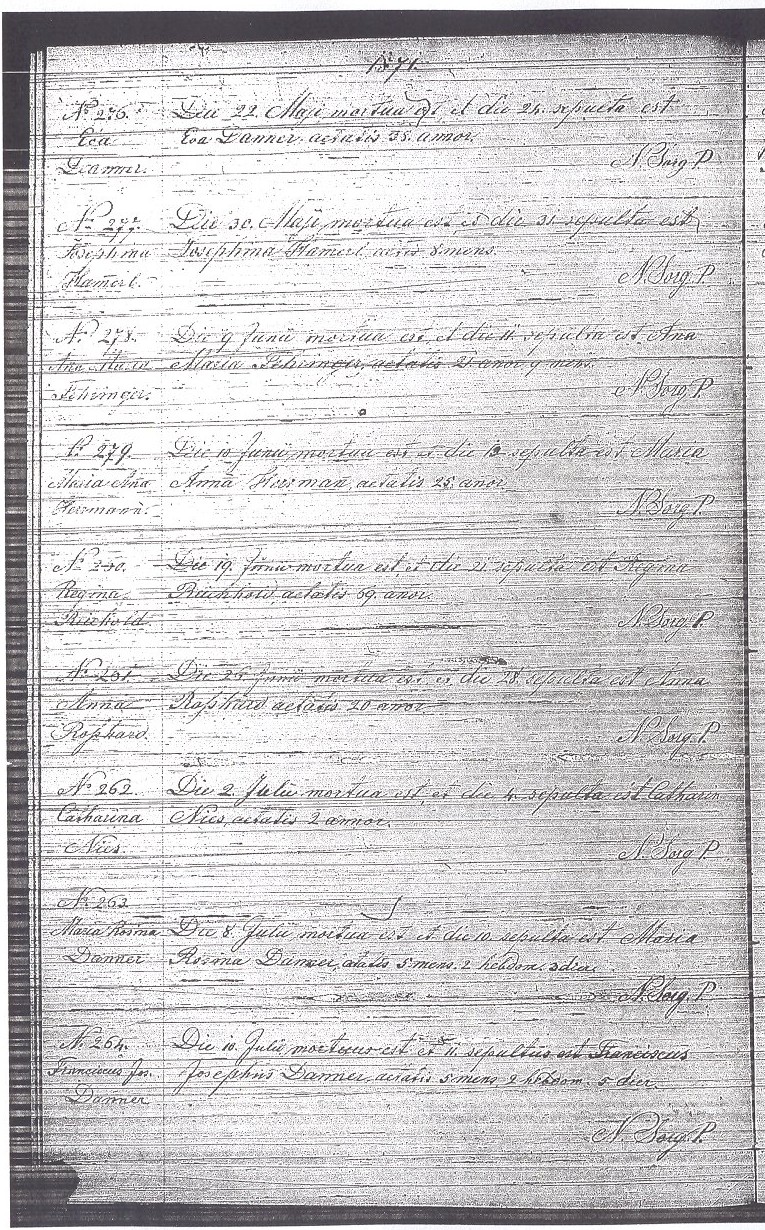 1871.
No 276. Die 22. Maji mortua est, et die 24. sepulta est
Eva Eva Danner aetatis 35. annor.
Danner. N. Sorg P.
No 277. Die 30. Maji mortua est et die 31 sepulta est
Josephina Josephina Hamerl aetis 8 mens.
Hamerl. N. Sorg. P.
No 278. Die 9 Junii mortua est, et die 11. sepulta est Ana
Ana Maria Maria Fehringer, aetatis 21 anor 9 mens.
Fehringer. N. Sorg P
No 279. Die 10 Junii mortua est et die 12 sepulta est Maria
Maria Ana Anna Herman, aetatis 25. anor
Herrmann. N. Sorg. P
No Die 19. Junii mortua est, et die 21 sepulta est Regina
Regina Reichhold, aetatis 69. anor.
Reichold. N. Sorg P.
No Die 26. Junii mortua est et die 28. sepulta est Anna
Anna aetatis 20 anor
N. Sorg P
No 262 Die 2. Julii mortua est, et die 4. sepulta est Catharin
Catharina Nies, aetatis 2 annor.
Nies. N. Sorg P.
No 263
Maria Rosina Die 8. Julii mortua est et die 10. sepulta est Maria
Danner Rosina Danner, aetatis 5 mens. 2 hebdom. 3 dier.
N. Sorg. P.
No 264. Die 10. Julii mortuus est et 11. sepultus est Franciscus
Franciscus Jos. Josephus Danner, aetatis 5 mens 2 hebdom. 5 dier.
Danner
N. Sorg. P.